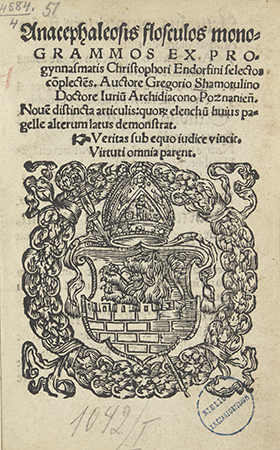 4584. 51
4
Anacephaleosis flosculos mono-
GRAMMOS EX. PRO-
gymnasmatis Christophori Endorfini selectos
cõplectẽs. Auctore Gregorio Shamotulino
Doctore Iuriũ Archidiacono Poznanieñ.
Nouẽ distincta articulis: quorꝝ elenchũ huius pa-
gelle alterum latus demonstrat.
☛ Veritas sub equo iudice vincit.
Virtuti omnia parent.
1042/I